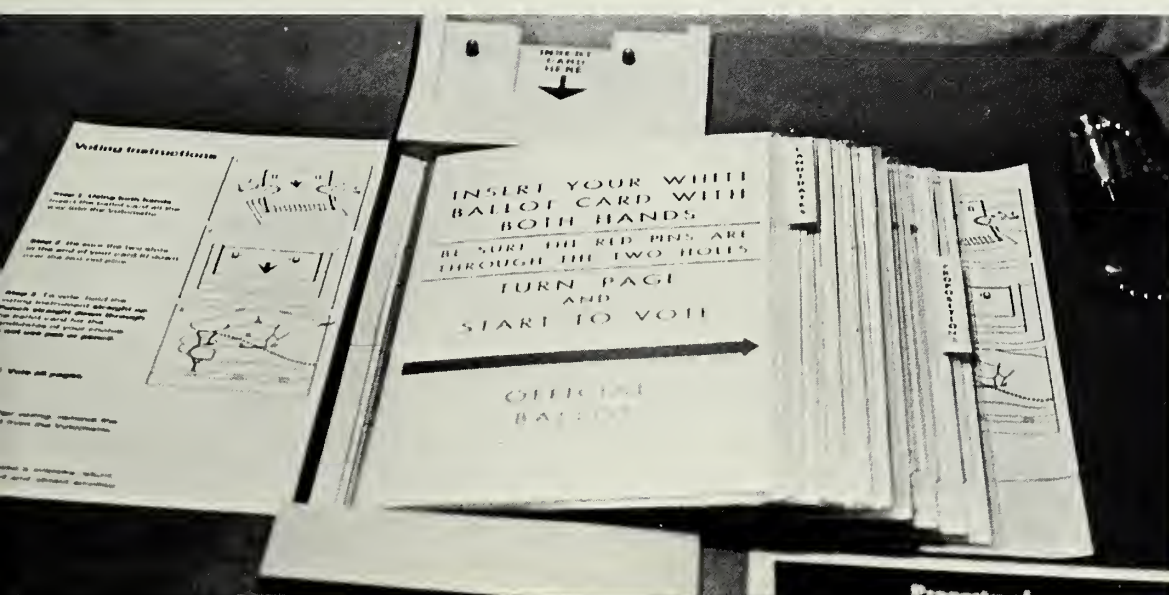 INSERT
CARD
HERE
Voting Instructions
Step 1 Using both hands
insert the ballot card all the
way into the Votomatic.
Step 2 Be sure the two slots
in the end of your card fit down
over the two red pins.
Step 3 To vote, hold the
voting instrument straight up
punch straight down through
the ballot card for the
candidates of your choice
not use pen or pencil.
Vote all pages.
voting, remove the
from the Votomatic.
INSERT YOUR WHITE
BALLOT CARD WITH
BOTH HANDS
BE SURE THE RED PINS ARE
THROUGH THE TWO HOLES
TURN PAGE
AND
START TO VOTE
OFFICIAL
BALLOT
CANDIDATES
PROPOSITIONS
Property of